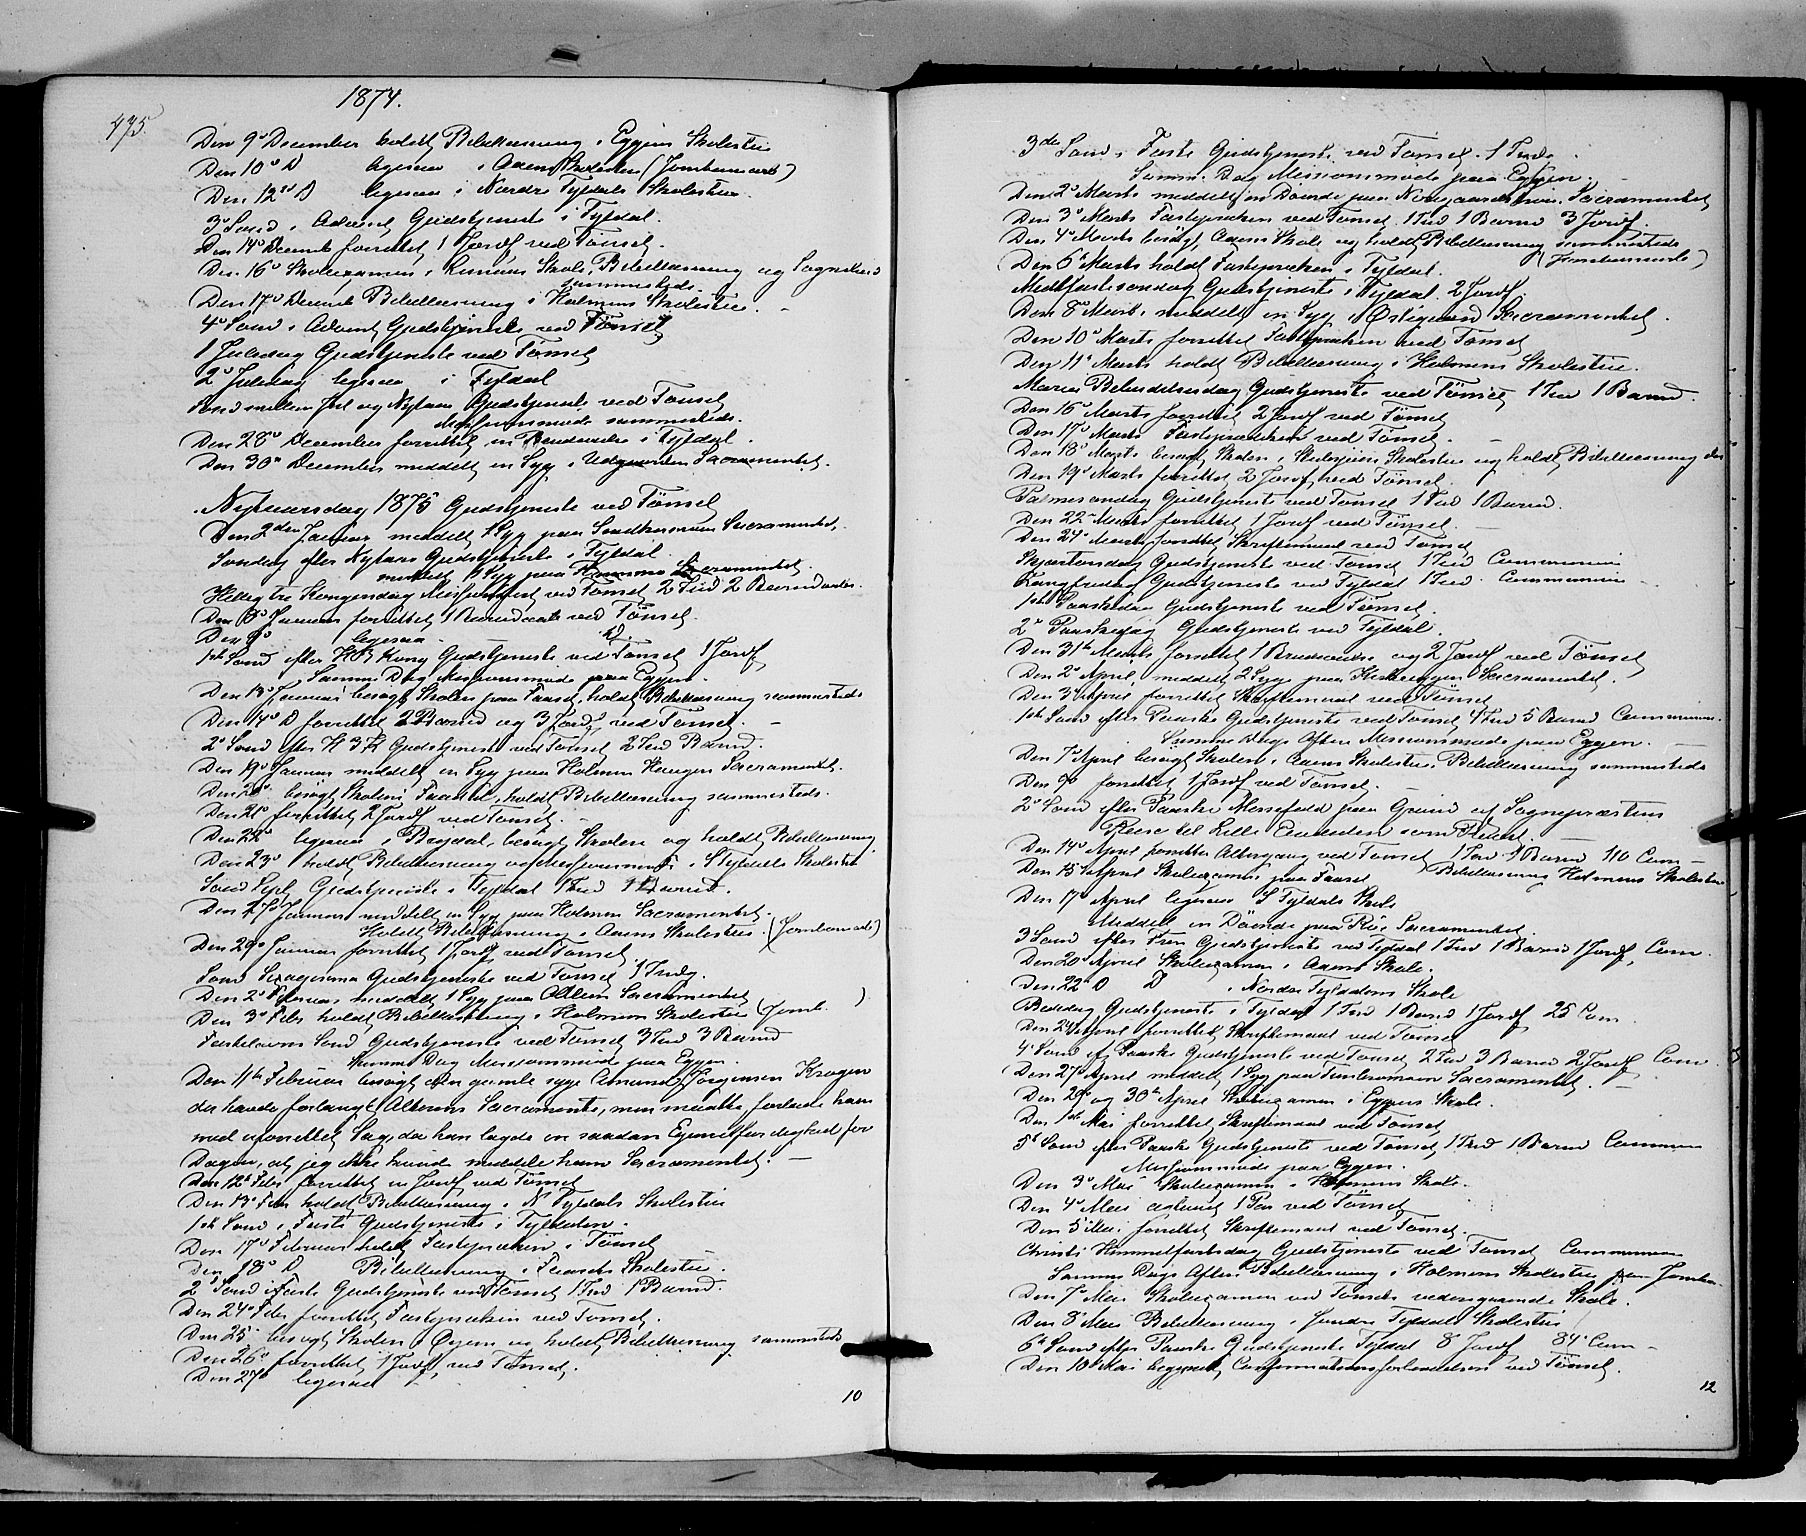 1874.
475.
Den 9de December holdt Bibellæsning i Eggens Skolestue
Den 10de D ligesaa i Aaens Skolestue (Jonhansaet)
Den 12te D ligesaa i Nordre Tyldals Skolestue
3de Sønd i Advent Gudstjeneste i Tyldal.
Den 14de Decemb forrettet 1 Jordf ved Tønset.
Den 16de Skoleexamen i Skole, Bibellæsning og
sammesteds.
Den 17de Decemb Bibellæsning i Holmens Skolestue.
4de Sønd i Advent Gudstjeneste ved Tønset
1 Juledag Gudstjeneste ved Tønset
2de Juledag ligesaa i Tyldal
Sønd mellem Jul og Nytaar Gudstjeneste ved Tønset
Missionsmøde sammesteds.
Den 28de December forrettet en Brudevielse i Tyldal.
Den 30te December meddelt en Syg i Udgaarden Sacramentet.
Nytaarsdag 1875 Gudstjeneste ved Tønset
Den 2den Januar meddelt 1 Syg paa Sacramentet.
Søndag efter Nytaar Gudstjeneste i Tyldal
meddelt 1 Syg paa Sacramentet.
Hellig tre Kongersdag Messefald ved Tønset 2 Ind 2 Barnedaab.
Den 8de Januar forrettet 1 Barnedaab ved Tønset.
Den 9de ligesaa D.
1ste Sønd efter H 3 Kong Gudstjeneste ved Tønset 1 Jordf
Samme Dag Missionsmøde paa Eggen.
Den 13de Januar besøgt Skolen paa Faaset, holdt Bibellæsning sammesteds
Den 14de D forrettet 2 Barnd og 3 Jordf ved Tønset.
2de Sønd efter H 3 K Gudstjeneste ved Tønset 2 Ind Barnd.
Den 19de Januar meddelt en Syg paa Holmen Haugen Sacramentet.
Den 20de besøgt Skolen i Faaset, holdt Bibellæsning sammesteds.
Den 21de forrettet 2 Jordf ved Tønset.
Den 22de ligesaa i Brydal, besøgt Skolen og holdt Bibellæsning
Den 23de holdt Bibellæsning og Missionsmøde i S Tyldals Skolestue
Sønd Sept. Gudstjeneste i Tyldal 1 Ind 1 Barnd.
Den 27de Januar meddelt en Syg paa Holmen Sacramentet.
Holdt Bibellæsning i Aaens Skolestue. (Jonhansaet)
Den 29de Januar forrettet 1 Jordf ved Tønset
Sønd Sexagesima Gudstjeneste ved Tønset 1 Indg.
Den 2de Februar meddelt 1 Syg paa Sacramentet
Den 3de Febr holdt Bibellæsning i Holmens Skolestue (Jonh. )
Fastelavns Sønd Gudstjeneste ved Tønset 3 Ind 3 Barnd
Samme Dag Missionsmøde paa Eggen.
Den 11te Februar besøgt den gamle syge Amund Jørgensen Krogen
der havde forlangt Alterens Sacramente, men maatte forlade ham
med uforrettet Sag, da han lagde en saadan Egenretfærdighed for
Dagen, at jeg ikke kunde meddele ham Sacramentet.
Den 12te Febr forrettet en Jordf ved Tønset
Den 13de Febr holdt Bibellæsning i N Tyldals Skolestue
1ste Sønd i Faste Gudstjeneste i Tyldalen.
Den 17de Februar holdt Fasteprædiken i Tønset
Den 18de D Bibellæsning i Faasets Skolestue.
2de Sønd i Faste Gudstjeneste ved Tønset 1 Ind 1 Barnd.
Den 24de Febr forrettet Fasteprædiken ved Tønset.
Den 25de besøgt Skolen i Øyen og holdt Bibellæsning sammesteds
Den 26de forrettet 1 Jordf ved Tønset.
Den 27de ligesaa
10
3de Sønd i Faste Gudstjeneste ved Tønset 1 Indg
Samm. Dag Missionsmøde paa Eggen.
Den 2de Marts meddelt en Døende paa Sacramentet
Den 3de Marts Fasteprædiken ved Tønset. 1 Ind 1 Barnd 3 Jordf
Den 4de Marts besøgt Aaens Skole og holdt Bibellæsning sammesteds
(Jonhansaet)
Den 6te Marts holdt Fasteprædiken i Tyldal.
Midfastesøndag Gudstjeneste i Tyldal. 2 Jordf
Den 8de Marts meddelt en Syg i Østigaard Sacramentet.
Den 10de Marts forrettet Fasteprædiken ved Tønset
Den 11te Marts holdt Bibellæsning i Holmens Skolestue.
Mariæ Bebudelsesdag Gudstjeneste ved Tønset 1 Ind 1 Barnd.
Den 16de Marts forrettet 2 Jordf ved Tønset
Den 17de Marts Fasteprædiken ved Tønset.
Den 18de Marts besøgt Skolen i Skolestue og holdt Bibellæsning der
Den 19de Marts forrettet 2 Jordf ved Tønset.
Palmesøndag Gudstjeneste ved Tønset 1 Ind 1 Barnd.
Den 22de Marts forrettet 1 Jordf ved Tønset.
Den 24de Marts forrettet Skriftemaal ved Tønset
Skjærtorsdag Gudstjeneste ved Tønset 1 Ind Communion
Langfredag Gudstjeneste ved Tyldal 1 Ind. Communion
1ste Paaskedag Gudstjeneste ved Tønset.
2de Paaskedag Gudstjeneste ved Tyldal.
Den 31te Marts forrettet 1 Brudevielse og 2 Jordf ved Tønset
Den 2de April meddelt 2 Syge paa Sacramentet.
Den 3de April forrettet Skriftemaal ved Tønset
1ste Sønd efter Paaske Gudstjeneste ved Tønset 4 Ind 5 Barnd Communion.
Samme Dags Aften Missionsmøde paa Eggen.
Den 7de April besøgt Skolen i Aaens Skolestue, Bibellæsning sammesteds
Den 9de forrettet 1 Jordf ved Tønset.
2de Sønd efter Paaske Messefald paa Grund af Sognepræstens
Reise til Lille
Den 14de April forrettet Altergang ved Tønset 1 Ind 1 Barnd 110 Com
Den 15de April Skoleexamen paa Faaset Bibellæsning Holmens Skolestue
Den 17de April ligesaa S Tyldals Skole
Meddelt en Døende paa Sacramentet.
3 Sønd efter Gudstjeneste ved Tyldal 1 Ind 1 Barnd 1 Jordf, Com.
Den 20de April Skoleexamen i Aaens Skole.
Den 22de D D i Nordre Tyldalens Skole
Bededag Gudstjeneste i Tyldal 1 Ind 1 Barnd 1 Jordf 25 Com.
Den 24de April forrettet Skriftemaal ved Tønset
4de Sønd ef Paaske Gudstjeneste ved Tønset 2 Ind 3 Barnd 2 Jordf Com
Den 27de April meddelt 1 Syg paa Sacramentet.
Den 29de og 30te April Skoleexamen i Eggens Skole.
Den 1ste Mai forrettet Skriftemaal ved Tønset
5te Sønd efter Paaske Gudstjeneste ved Tønset 1 Ind 1 Barnd Communion
Missionsmøde paa Eggen.
Den 3de Mai Skoleexamen i Holmens Skole.
Den 4de Mai ægteviet 1 Par ved Tønset
Den 5te Mai forrettet Skriftemaal ved Tønset.
Christi Himmelfartsdag Gudstjeneste ved Tønset Communion
Samme Dags Aften Bibellæsning i Holmens Skolestue
Den 7de Mai Skoleexamen ved Tønsets vedergaaende Skole.
Den 8de Mai Bibellæsning i Søndre Tyldals Skolestue
6te Sønd efter Paaske Gudstjeneste Tyldal 8 Jordf 84 Com
Den 10de Mai begyndt Confirmationsforberedelsen ved Tønset.
12